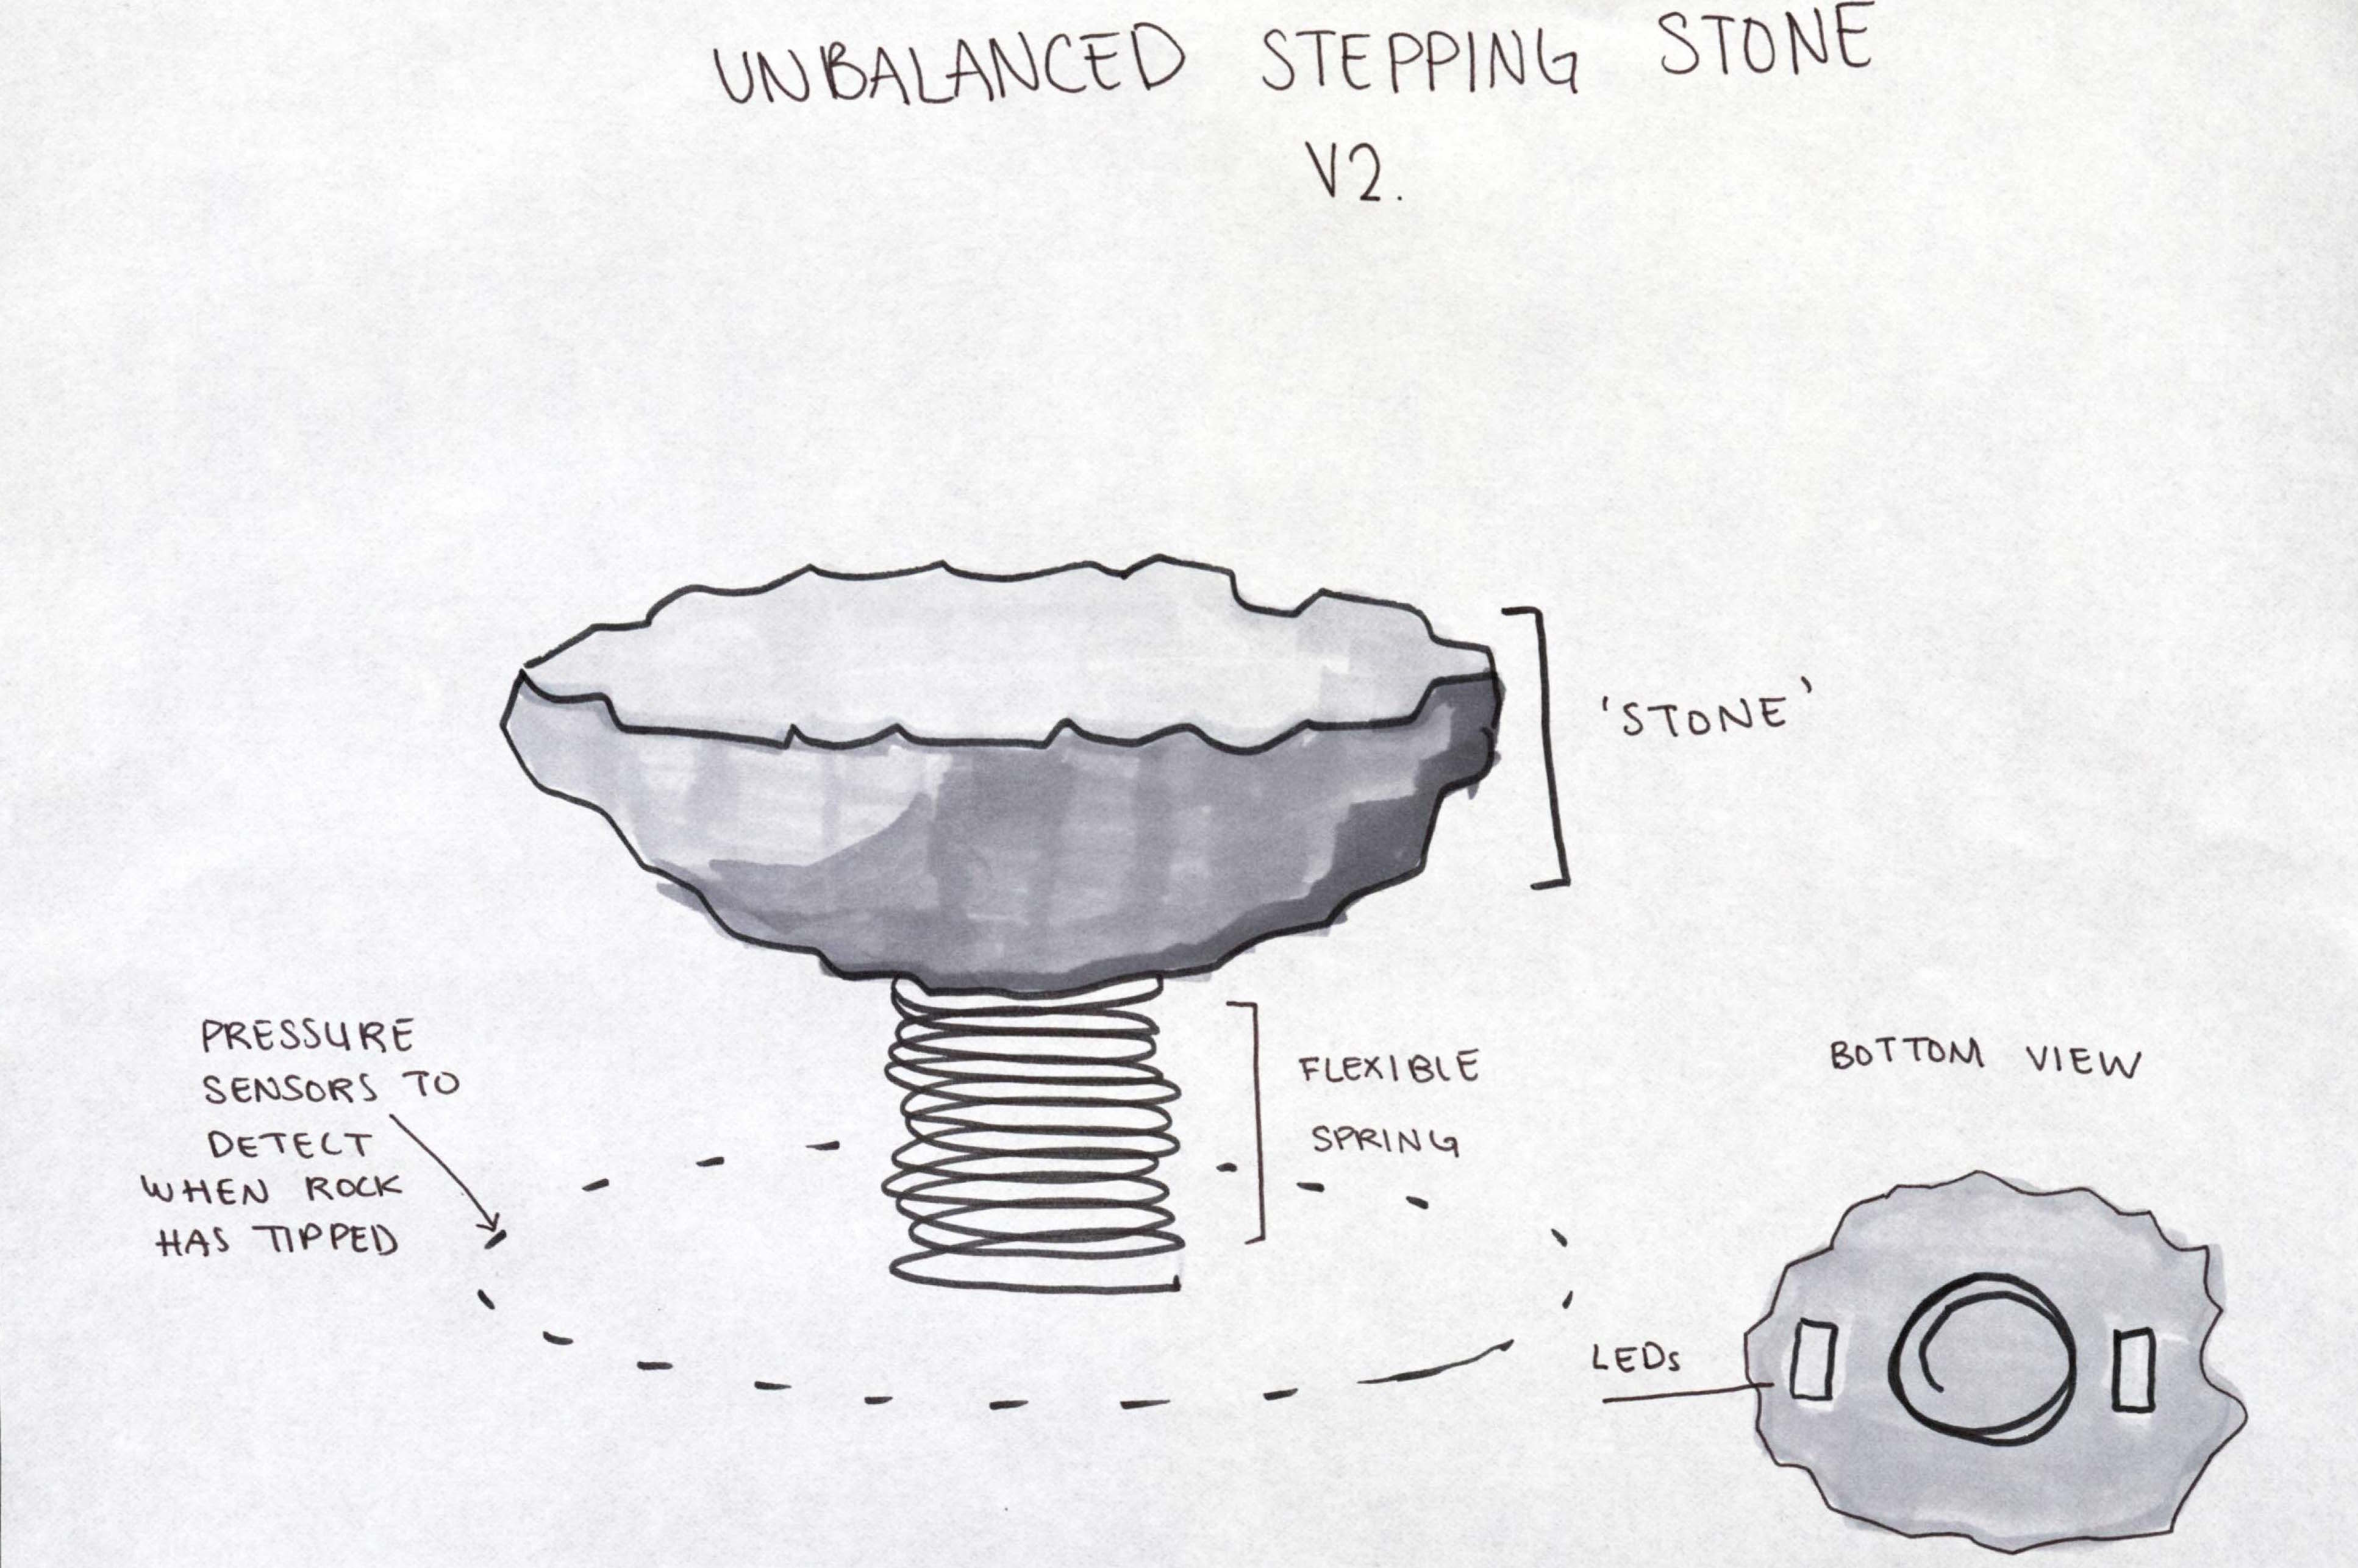 UNBALANCED STEPPING STONE
V2.
'STONE'
FLEXIBLE
SPRING
PRESSURE
SENSORS TO
DETECT
WHEN ROCK
HAS TIPPED
BOTTOM VIEW
LEDs